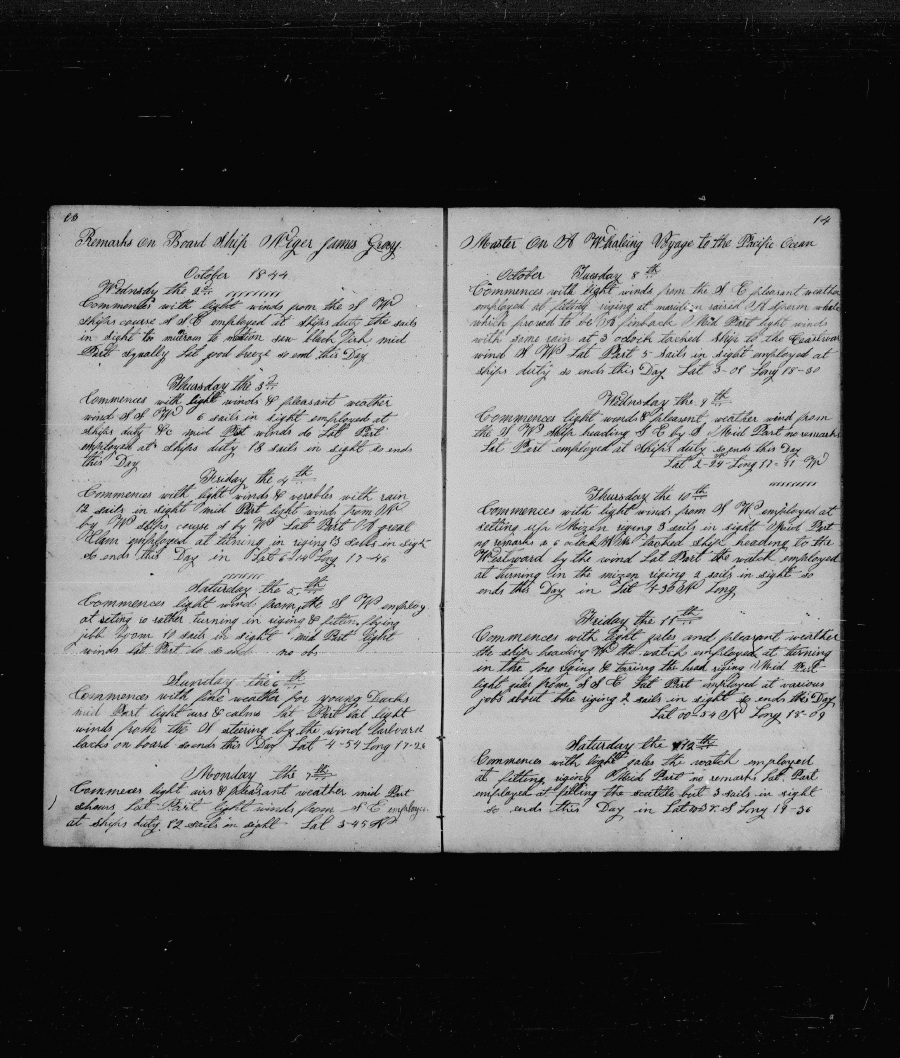 Remarks On Board Ship Niger James Grey
October 1844
Wednsday the 2nd
Commences with light winds from the N W
ships course S S E employed at ships duty the sails
in sight to mitron to motion saw black fish mid
Part squally Lat good breeze so ends this Day
Thursday the 3rd
Commences with light winds & pleasant weather
wind S S W 6 sails in sight employed at
ships duty &c mid Part winds do Lat Part
employed at ships duty 18 sails in sight so ends
this Day
Friday the 4th
Commences with light winds & verables with rain
12 sails in sight mid Part light wind from N
by W ships course S by W Lat Part A great
Clam employed at titring in riging 13 sails in sight
so ends this Day in Lat 6-14 Log 17-46
Saturday the 5th
Commences light wind from the S W employ
at seting to rather turning in riging & fitting flying
jibb boom 10 sails in sight mid Part light
winds Lat Part do so ends no ob
Sunday the 6th
Commences with fine weather for young Ducks
mid Part light airs & calms Lat Part Lat light
winds from the S steering by the wind Larboard
tacks on board so ends this Day Lat 4-54 Long 17-26
Monday the 7th
Commences light airs & pleasant weather mid Part
showrs Lat Part light winds from S E employe
at ships duty 12 sails in sight Lat 3-45 N
14
Master On A Whaleing Voyage to the Pacific Ocean
October Tuesday 8th
Commences with light winds from the S E pleasant weather
employed at fitting riging at maridin raised A sperm whale
which proved to be A finback Mid Part light winds
with some rain at 3 oclock tacked ship to the Eastward
wind S W Lat Part 5 sails in sight employed at
ships duty so ends this Day Lat 3-08 Long 18-30
Wednesday the 9th
Commences light winds & pleasent weather wind from
the S W ship heading S E by S Mid Part no remarks
Lat Part employed at Ships duty so ends this Day
Lat 2-24 Long 17-11 W
Thursday the 10th
Commences with light winds from S W employed at
setting up Mizen riging 3 sails in sight Mid Part
no remarks a 6 oclock A M Tacked ship heading to the
Westward by the wind Lat Part the watch employed
at turning in the mizen riging 2 sails in sight so
ends this Day in Lat 1-36 N Long
Friday the 11th
Commences with light gales and pleasant weather
the ship heading W the watch employed at turning
in the fore riging & taring the head riging Mid Part
light airs from S S E Lat Part employed at various
jobs about the riging 2 sails in sight so ends this Day
Lat 00-54 N Long 18-09
Saturday the 12th
Commences with light gales the watch employed
at fitting riging Mid Part no remarks Lat Part
employed at filling the scuttle but 3 sails in sight
so ends this Day in Lat S Long 19-36